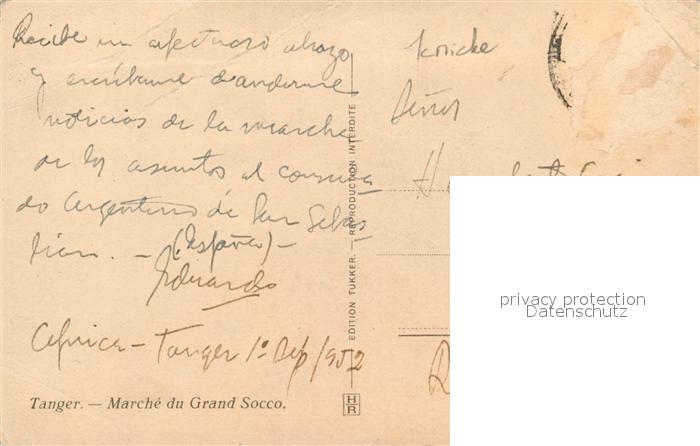 Recibe un afectuoso abrazo
y escríbeme dandome
noticias de la marcha
de los asuntos al consula
do Argentino de San Sebas
tian. - (España) -
Eduardo
Africa - Tanger 1º Sep/952
Tanger. — Marché du Grand Socco.
EDITION TUKKER. — REPRODUCTION INTERDITE
HR
knicke
Señor
privacy protection
Datenschutz